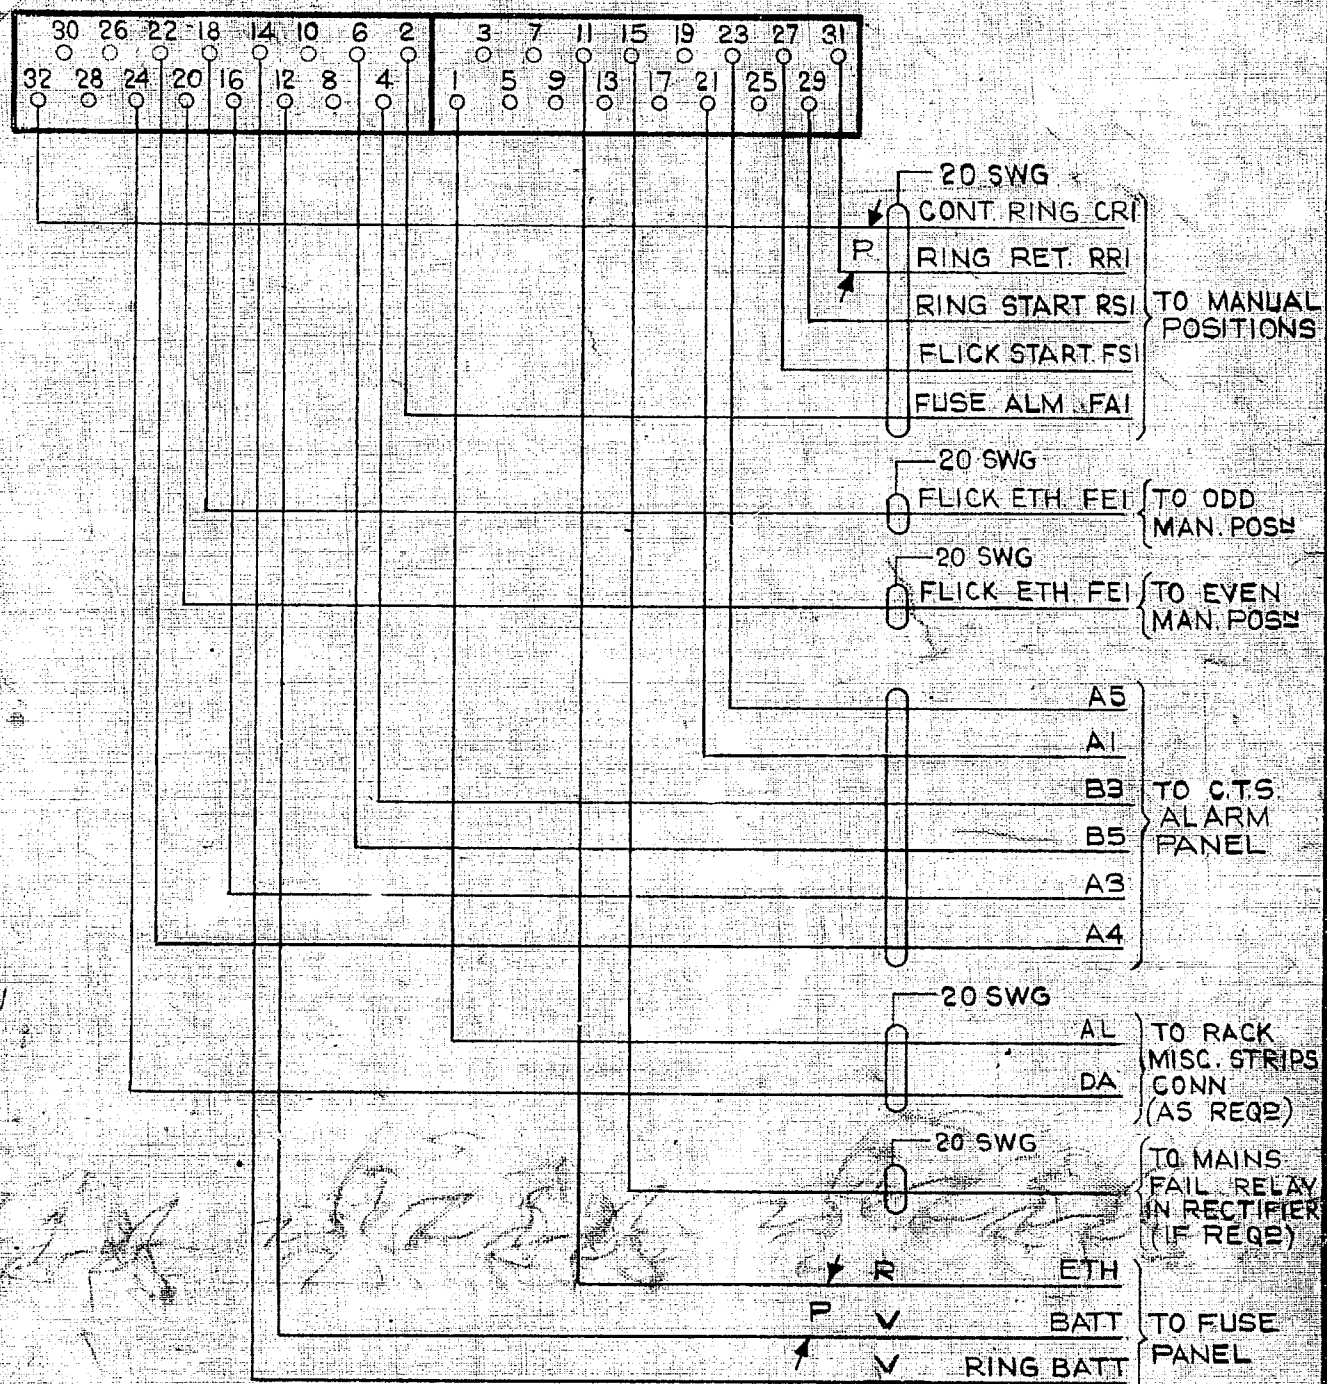 30 26 22 18 14 10 6 2 3 7 11 15 19 23 27 31
32 28 24 20 16 12 8 4 1 5 9 13 17 21 25 29
20 SWG
CONT. RING CR1
P
RING RET. RR1
RING START RS1
FLICK START. FS1
FUSE ALM FA1
TO MANUAL
POSITIONS
20 SWG
FLICK ETH FE1
TO ODD
MAN. POSN
20 SWG
FLICK ETH FE1
TO EVEN
MAN. POSN
A5
A1
B3
B5
A3
A4
TO C.T.S.
ALARM
PANEL
20 SWG
AL
DA
TO RACK
MISC. STRIPS
CONN
(AS REQD)
20 SWG
TO MAINS
FAIL RELAY
IN RECTIFIER
(IF REQD)
R ETH
P V BATT
V RING BATT
TO FUSE
PANEL